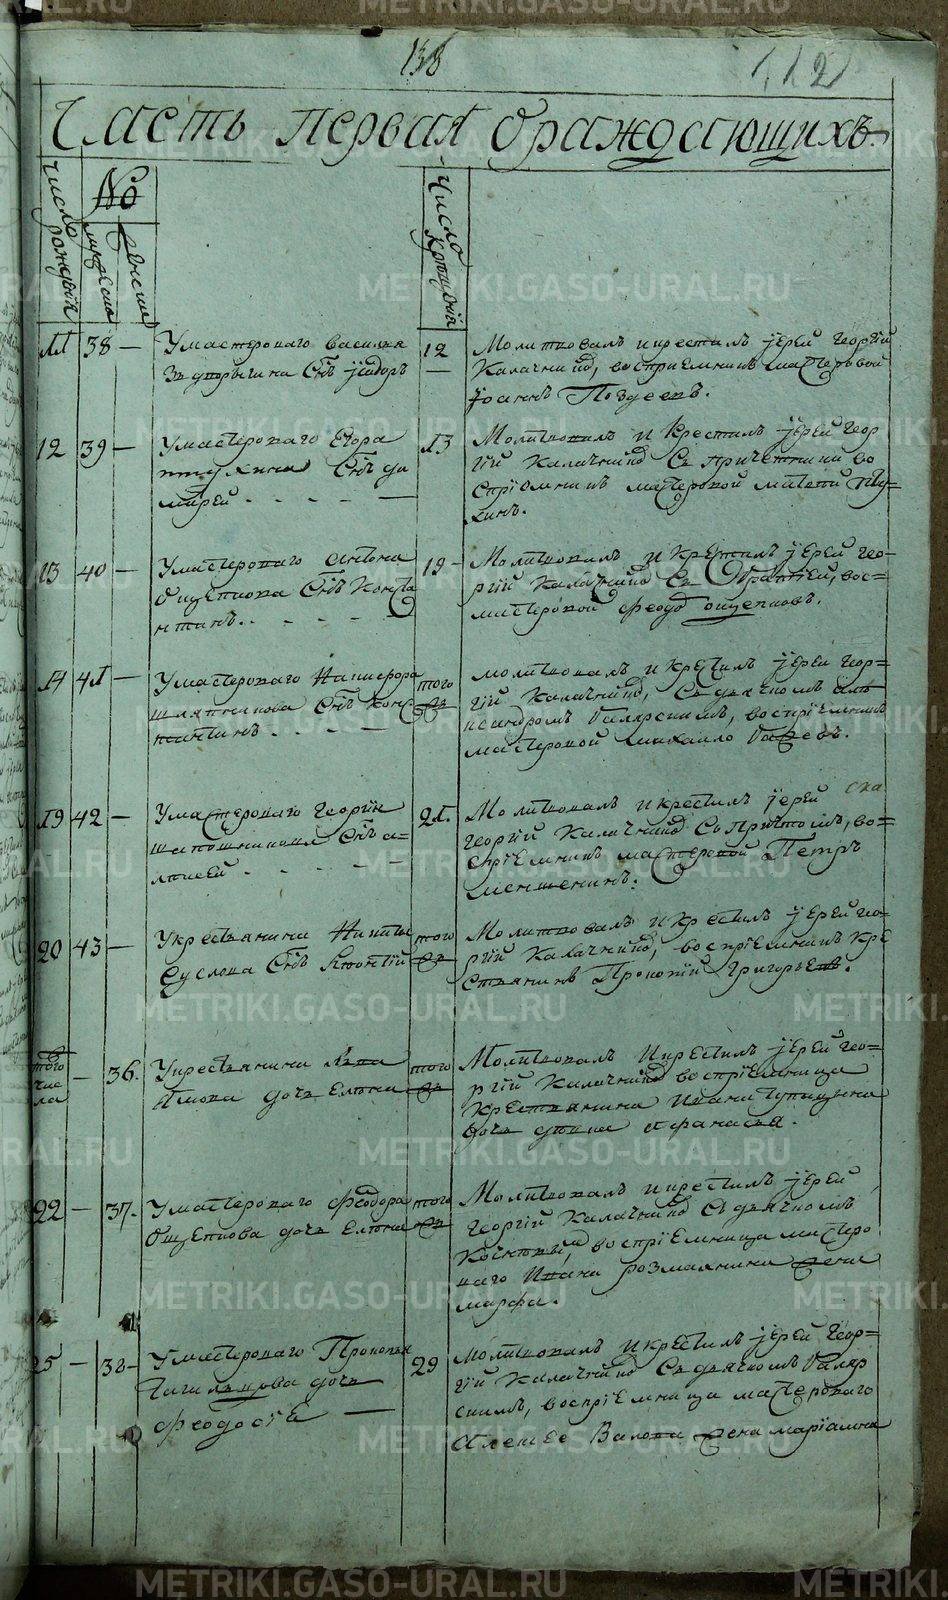 138
112
Часть первая о раждающихъ.
Число рождения
№
Число крещения
11 38 — У мастероваго василья
сынъ ісидоръ
12 —
Молитвовалъ и крестилъ іерей георгій
Калачниковъ, воспріемникъ мастеровой
Іоаннъ Поздеевъ.
12 39 — У мастероваго Егора
птухина сынъ
13
Молитвовалъ и Крестилъ іерей геор
гій Калачниковъ съ причетники во
спріемникъ мастеровой матвей Пту=
хинъ.
13 40 — У мастероваго антона
Ощепкова сынъ Конста
нтинъ. - - - -
19 —
Молитвовалъ и Крестилъ іерей гео-
ргій Калачниковъ съ братіей, вос=
мастеровой феодоръ ощепковъ.
14 41 — У мастероваго Никифора
шляпникова сынъ Конст
нтинъ - - - -
того
молитвовалъ и крестилъ іерей геор=
гій Калачниковъ, съ дьячкомъ але
ксандромъ Галярскимъ, воспріемникъ
мастеровой михайло
19 42 — У мастероваго георгія
шапошникова сынъ а=
лексей - - - -
21.
Молитвовалъ и крестилъ іерей
георгій Калачниковъ съ причтомъ, во=
спріемникъ мастеровой Петръ
меншенинъ.
20 43 — У крестьянина Никиты
Суслова сынъ Леонтій
того
Молитвовалъ и Крестилъ іерей гео-
ргій Калачниковъ, воспріемникъ кре
стьянинъ Прокопій Григорьевъ.
того
чис
ла — 36. У крестьянина
дочь Елена
того
Молитвовалъ и крестилъ іерей гео-
ргій Калачниковъ воспріемница
Крестьянина Ивана Чупицына
дочь девица афанасья.
22 — 37. У мастероваго Феодора
Ощепкова дочь Елена
того
Молитвовалъ и крестилъ іерей
георгій Калачниковъ съ дьячкомъ
воспріемница мастеро
ваго Ивана розманкина жена
марфа.
25 — 38 — У мастероваго Прокопья
Тагильцова дочь
Феодосія —
29
Молитвовалъ и крестилъ іерей Геор=
гій Калачниковъ съ дьячкомъ Галяр
скимъ, воспріемница мастероваго
Алексея Валова жена маріамна
METRIKI.GASO-URAL.RU